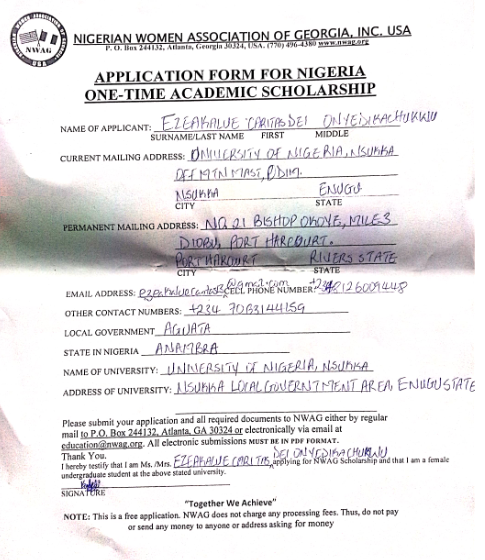 NWAG
NIGERIAN WOMEN ASSOCIATION OF GEORGIA, INC. USA
P. O. Box 244132, Atlanta, Georgia 30324, USA. (770) 496-4380 www.nwag.org
APPLICATION FORM FOR NIGERIA
ONE-TIME ACADEMIC SCHOLARSHIP
NAME OF APPLICANT: EZEAKALUE CARITAS DEI ONYEDIKACHUKWU
SURNAME/LAST NAME FIRST MIDDLE
CURRENT MAILING ADDRESS: UNIVERSITY OF NIGERIA, NSUKKA
OFF MTN MAST,
NSUKKA ENUGU
CITY STATE
PERMANENT MAILING ADDRESS: NO. 21 BISHOP OKOYE, MILE 3
DIOBU, PORT HARCOURT.
PORT HARCOURT RIVERS STATE
CITY STATE
EMAIL ADDRESS: @gmail.com CELL PHONE NUMBER: +234 8126009448
OTHER CONTACT NUMBERS: +234 7083144159
LOCAL GOVERNMENT AGUATA
STATE IN NIGERIA ANAMBRA
NAME OF UNIVERSITY: UNIVERSITY OF NIGERIA, NSUKKA
ADDRESS OF UNIVERSITY: NSUKKA LOCAL GOVERNMENT AREA, ENUGU STATE
Please submit your application and all required documents to NWAG either by regular
mail to P.O. Box 244132, Atlanta, GA 30324 or electronically via email at
education@nwag.org. All electronic submissions MUST BE IN PDF FORMAT.
Thank You.
I hereby testify that I am Ms. /Mrs. EZEAKALUE CARITAS DEI ONYEDIKACHUKWU applying for NWAG Scholarship and that I am a female
undergraduate student at the above stated university.
SIGNATURE
"Together We Achieve"
NOTE: This is a free application. NWAG does not charge any processing fees. Thus, do not pay
or send any money to anyone or address asking for money